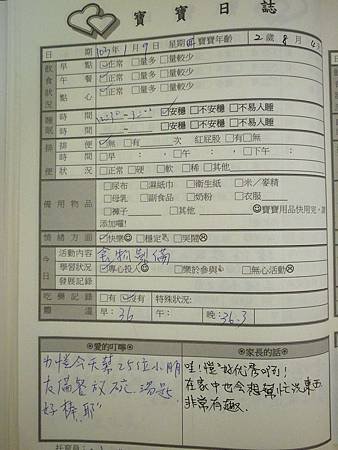 寶寶日誌
日期 103年1月9日 星期四 寶寶年齡 2歲8月4
飲食狀況
早點 ☑正常 □量多 □量較少
午餐 ☑正常 □量多 □量較少
點心 ☑正常 □量多 □量較少
睡眠
時間 ☑安穩 □不安穩 □不易入睡
時間 - □安穩 □不安穩 □不易入睡
排便
排便 ☑無 □有 次 紅屁股 □有 □無
時間 □早: , □午: , □下午:
狀況 □正常 □硬 □軟 □稀 □其他
備用物品
□尿布 □濕紙巾 □衛生紙 □米/麥精
□母乳 □副食品 □奶粉 □衣服
□褲子 □其他 ☺寶寶用品快用完,請
添加喔!
情緒方面 ☑快樂☺ □穩定 □哭鬧☹
今日
活動內容
學習狀況 ☑專心投入☺ □樂於參與 □無心活動☹
發展記錄
吃藥記錄 □有 ☑沒有 特殊狀況:
體溫 早:36 午: 晚:36.3
◎愛的叮嚀◎
力愷今天幫25位小朋
友備餐放碗、湯匙,
好棒耶~
◎家長的話◎
哇!愷愷好優秀喲!
在家中也會想幫忙洗東西
非常有趣.